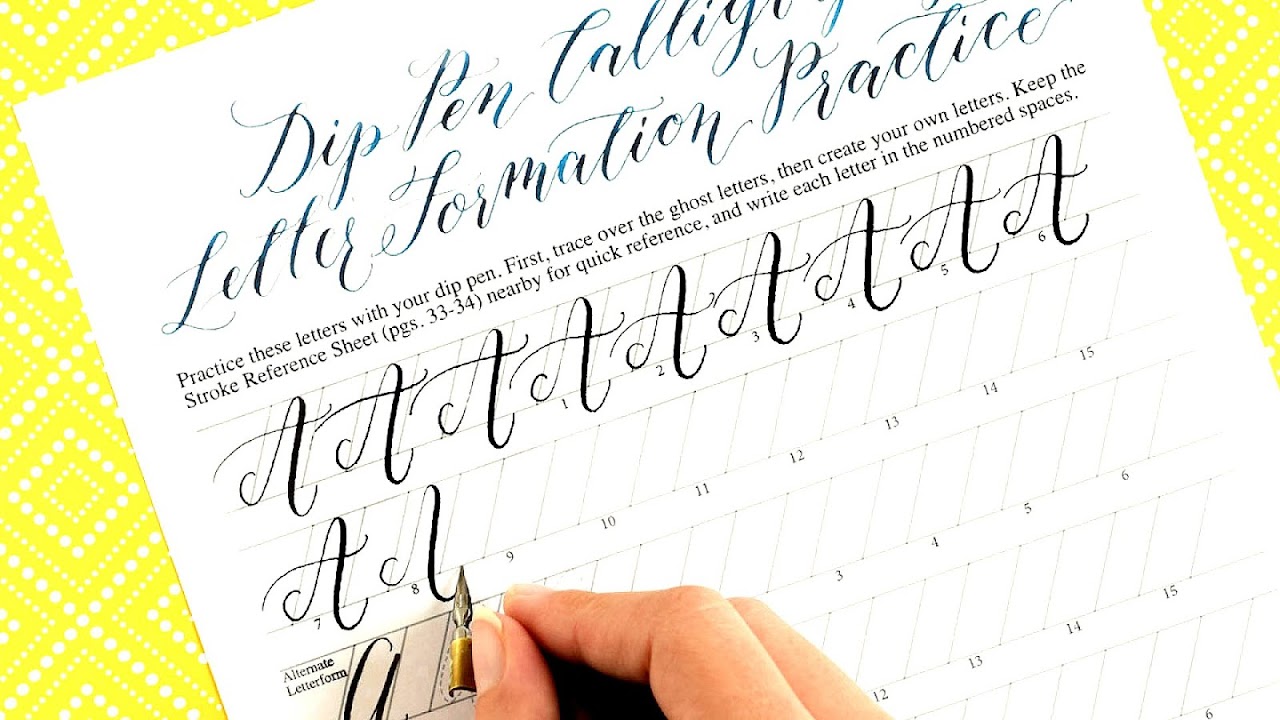 Dip Pen Calligraphy
Letter Formation Practice
Practice these letters with your dip pen. First, trace over the ghost letters, then create your own letters. Keep the
Stroke Reference Sheet (pgs. 33-34) nearby for quick reference, and write each letter in the numbered spaces.
A A A A A A A A A
1 2 3 4 5 6
A A
7 8 9 10 11 12 13 14 15
Alternate
Letterform
a
3 4 5 6
12 13 14 15
6